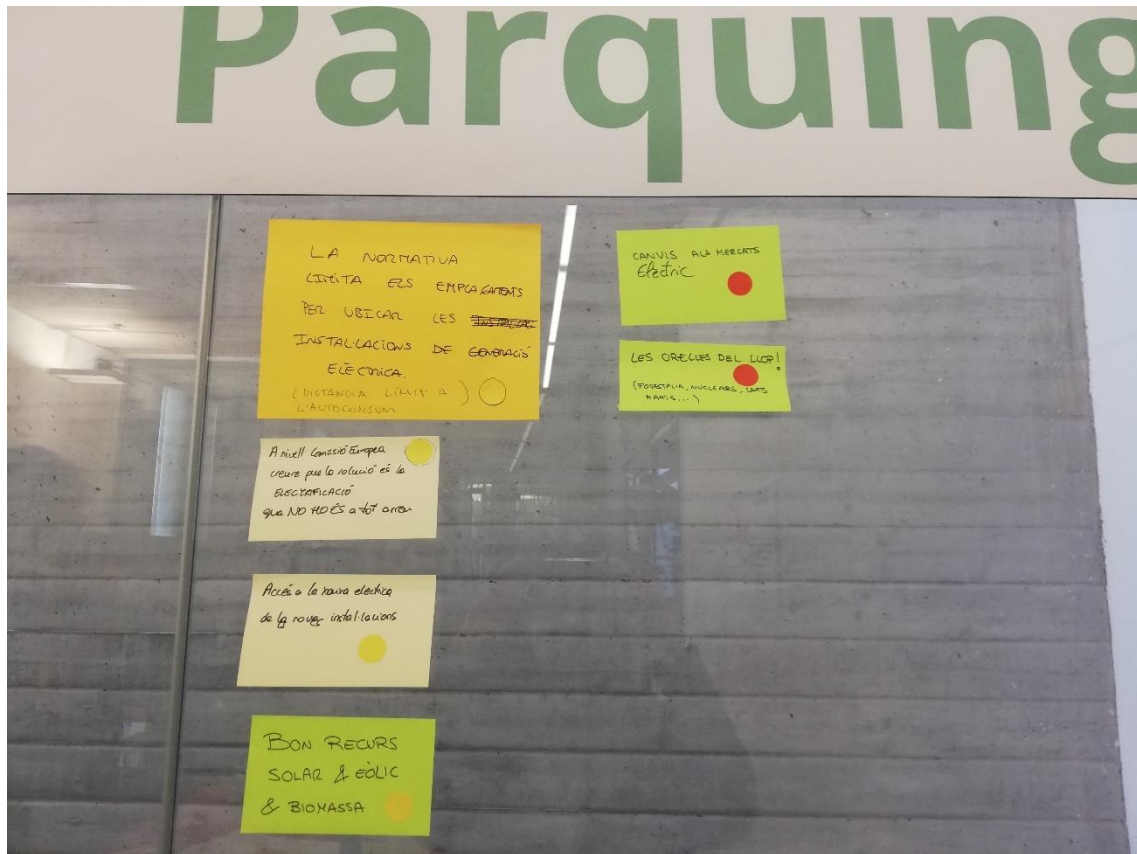 Parquing
LA NORMATIVA
LIMITA ELS EMPLAÇAMENTS
PER UBICAR LES
INSTAL·LACIONS DE GENERACIÓ
ELÈCTRICA.
(DISTÀNCIA LÍMIT A )
L'AUTOCONSUM
A nivell Comissió Europea
creure que la solució és la
ELECTRIFICACIÓ
que NO HO ÉS a tot arreu
Accés a la xarxa elèctrica
de les noves instal·lacions
BON RECURS
SOLAR & EÒLIC
& BIOMASSA
CANVIS ALS MERCATS
Elèctric
LES ORELLES DEL LLOP!
(FORESTALIA, NUCLEARS,